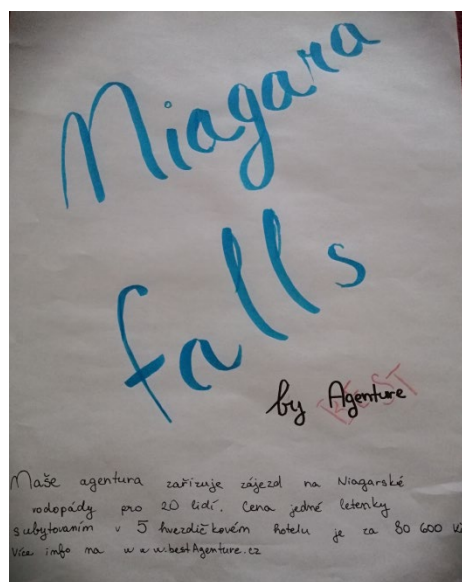 Niagara
falls
by Agenture
BEST
Naše agentura zařizuje zájezd na Niagarské
vodopády pro 20 lidí. Cena jedné letenky
s ubytovaním v 5 hvezdičkovém hotelu je za 80 600 Kč
Více info na www.bestAgenture.cz